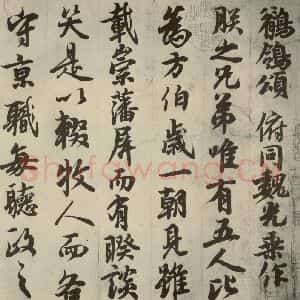 鶺鴒頌俯同魏光乘作
朕之兄弟唯有五人比
為方伯歲一朝見雖
載崇藩屏而有睽談
笑是以輟牧人而各
守京職每聽政之
Shufawang.Cn